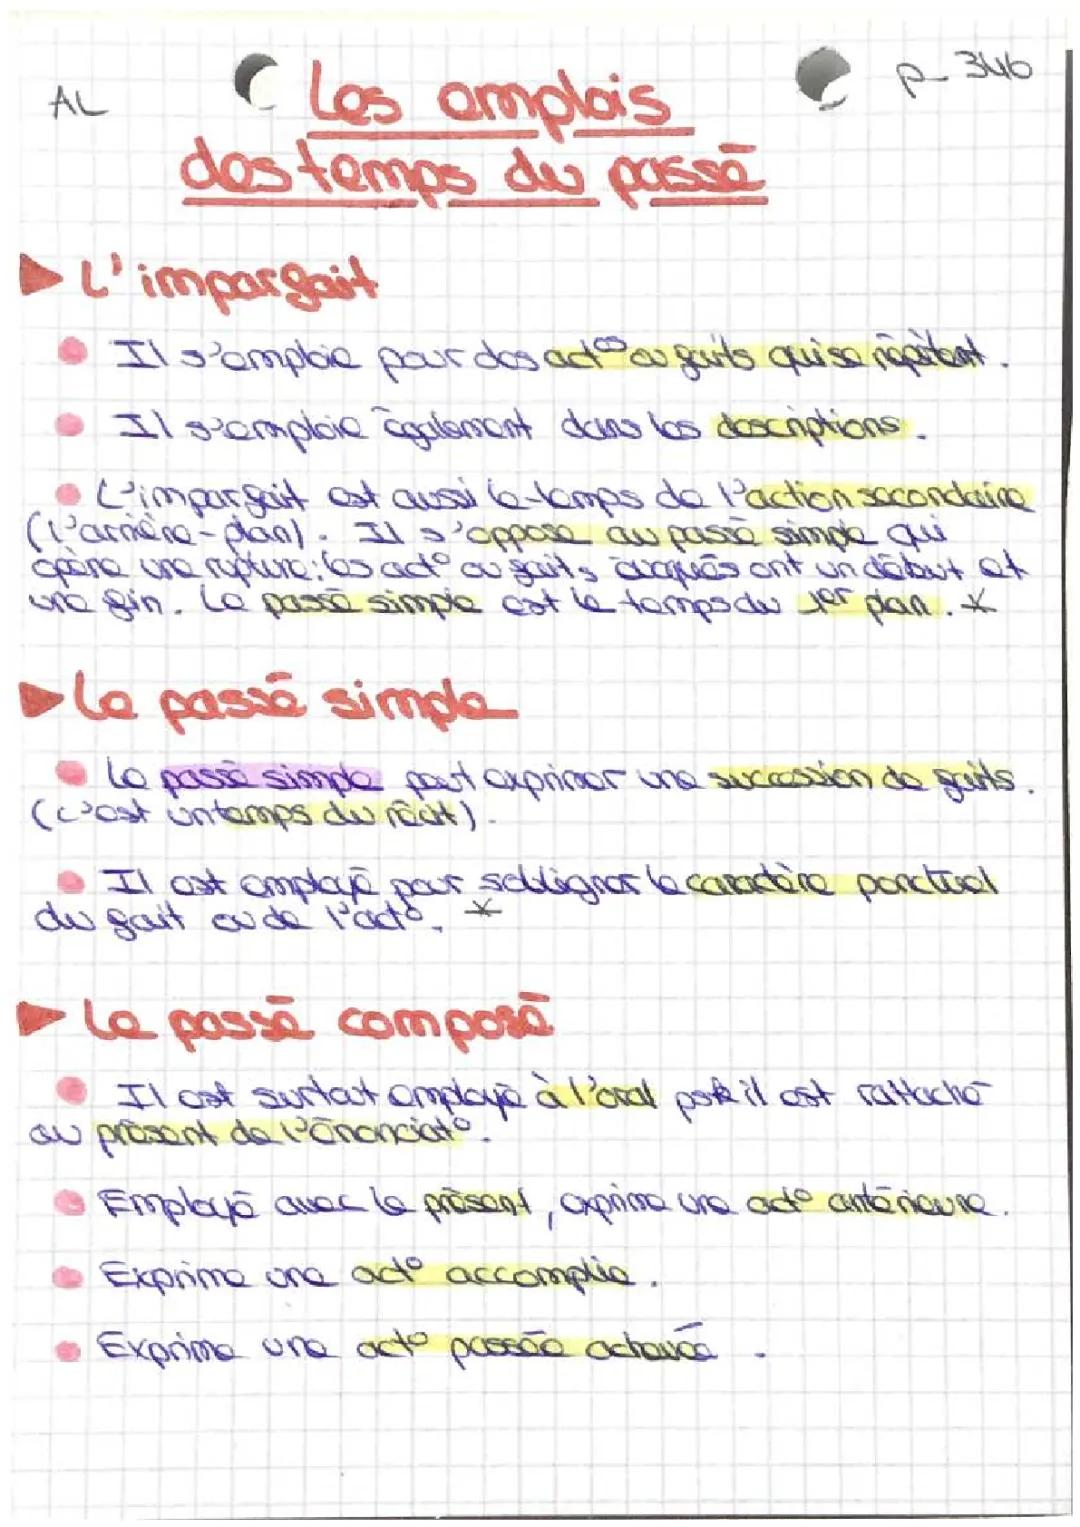 AL
p. 346
Les emplois
des temps du passé
L'imparfait
Il s'emploie pour des act°s ou faits qui se répètent.
Il s'emploie également dans les descriptions.
L'imparfait est aussi le temps de l'action secondaire
(l'arrière-plan). Il s'oppose au passé simple qui
opère une rupture: les act° ou faits évoqués ont un début et
une fin. Le passé simple est le temps du 1er plan. *
Le passé simple
Le passé simple peut exprimer une succession de faits.
(c'est un temps du récit).
Il est employé pour souligner le caractère ponctuel
du fait ou de l'act°. *
Le passé composé
Il est surtout employé à l'oral pske il est rattaché
au présent de l'énonciat°.
Employé avec le présent, exprime une act° antérieure.
Exprime une act° accomplie.
Exprime une act° passée achevée.